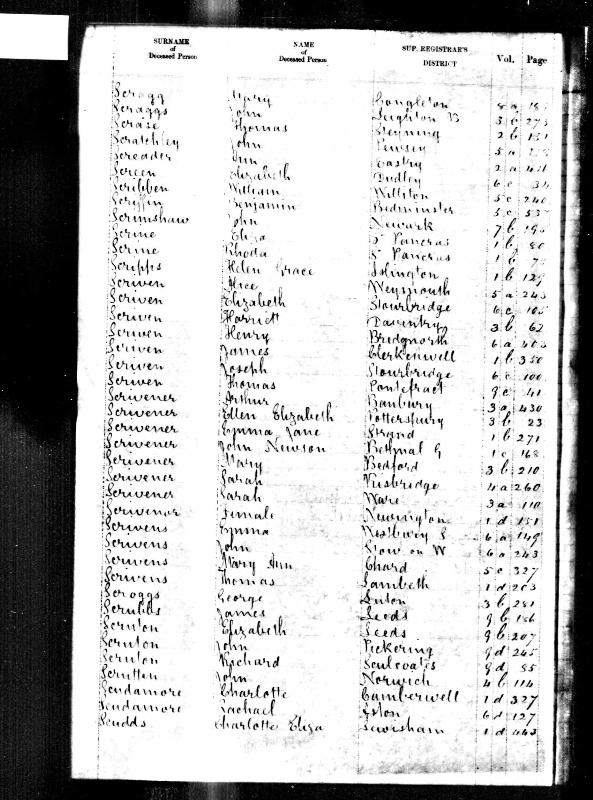 SURNAME of Deceased Person NAME of Deceased Person SUP. REGISTRAR'S DISTRICT Vol. Page
Scragg Mary Congleton 8 a
Scraggs John Leighton B 3 b 273
Scrase Thomas Steyning 2 b 151
Scratchley John Pewsey 5 a
Screader Ann Eastry 2 a 431
Screen Elizabeth Dudley 6 c 34
Scribben William Williton 5 c 240
Scriffin Benjamin Bedminster 5 c 537
Scrimshaw John Newark 7 b
Scrine Eliza St Pancras 1 b 80
Scrine Rhoda St Pancras 1 b
Scripps Helen Grace Islington 1 b 129
Scriven Alice Weymouth 5 a 243
Scriven Elizabeth Stourbridge 6 c 105
Scriven Harriett Daventry 3 b 62
Scriven Henry Bridgnorth 6 a
Scriven James Clerkenwell 1 b 350
Scriven Joseph Stourbridge 6 c 100
Scriven Thomas Pontefract 9 c 41
Scrivener Arthur Banbury 3 a 430
Scrivener Ellen Elizabeth Potterspury 3 b 23
Scrivener Emma Jane Strand 1 b 271
Scrivener John Newson Bethnal G 1 c 168
Scrivener Mary Bedford 3 b 210
Scrivener Sarah Uxbridge 4 a 260
Scrivener Sarah Ware 3 a 110
Scrivenor Female Newington 1 d 151
Scrivens Emma Westbury S 6 a 149
Scrivens John Stow on W 6 a 243
Scrivens Mary Ann Chard 5 c 327
Scrivens Thomas Lambeth 1 d 263
Scroggs George Luton 3 b 281
Scrubbs James Leeds 9 b 186
Scruton Elizabeth Leeds 9 b 207
Scruton John Pickering 9 d 245
Scruton Richard Sculcoates 9 d 85
Scrutton John Norwich 4 b 114
Scudamore Charlotte Camberwell 1 d 327
Scudamore Rachael Aston 6 d 127
Scudds Charlotte Eliza Lewisham 1 d 443